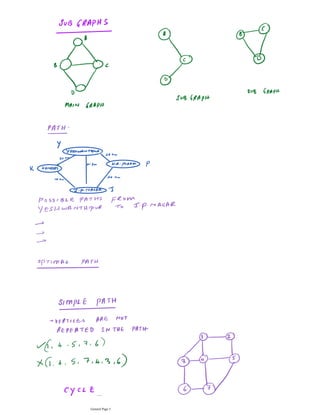 SUB GRAPHS
A
B
C
D
MAIN GRAPH
A
C
D
SUB GRAPH
B
C
D
SUB GRAPH
PATH-
Y
YESHWANTHPUR
K
P
J.P.NAGAR
J
POSSIBLE PATHS FROM
YESHWANTHPUR TO J P NAGAR
→
→
→
OPTIMAL PATH
SIMPLE PATH
→ VERTICES ARE NOT
REPEATED IN THE PATH
✓(1, 4, 5, 7, 6)
X (1, 4, 5, 7, 4, 3, 6)
1
2
3
4
5
6
7
CYCLE
General Page 1